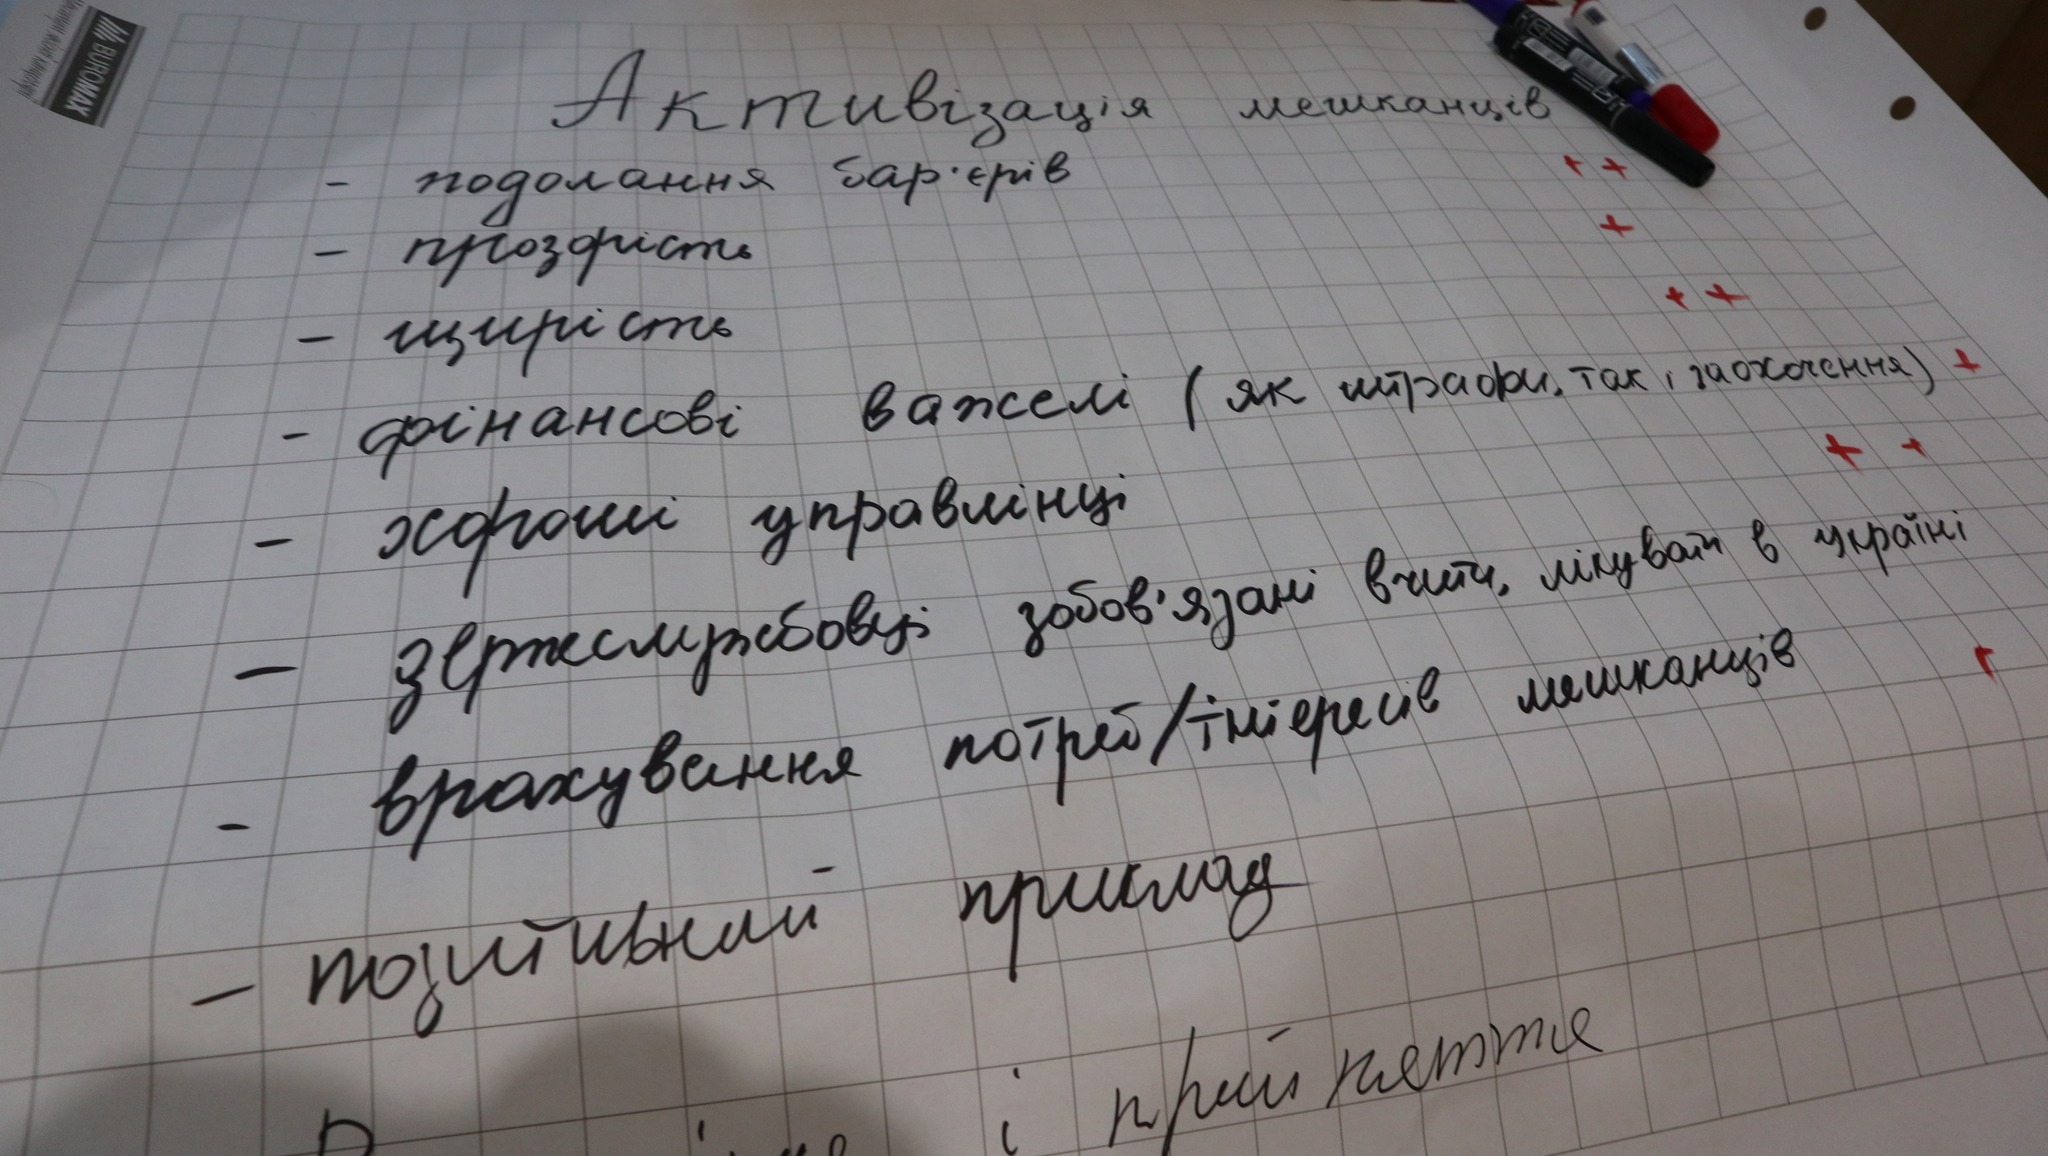 BUROMAX
Активізація мешканців
- подолання бар'єрів + +
- прозорість +
- щирість + +
- фінансові важелі (як штрафи, так і заохочення) +
- хороші управлінці + +
- держслужбовці зобов'язані вчити, лікувати в Україні
- врахування потреб/інтересів мешканців +
- позитивний приклад
і прийняття